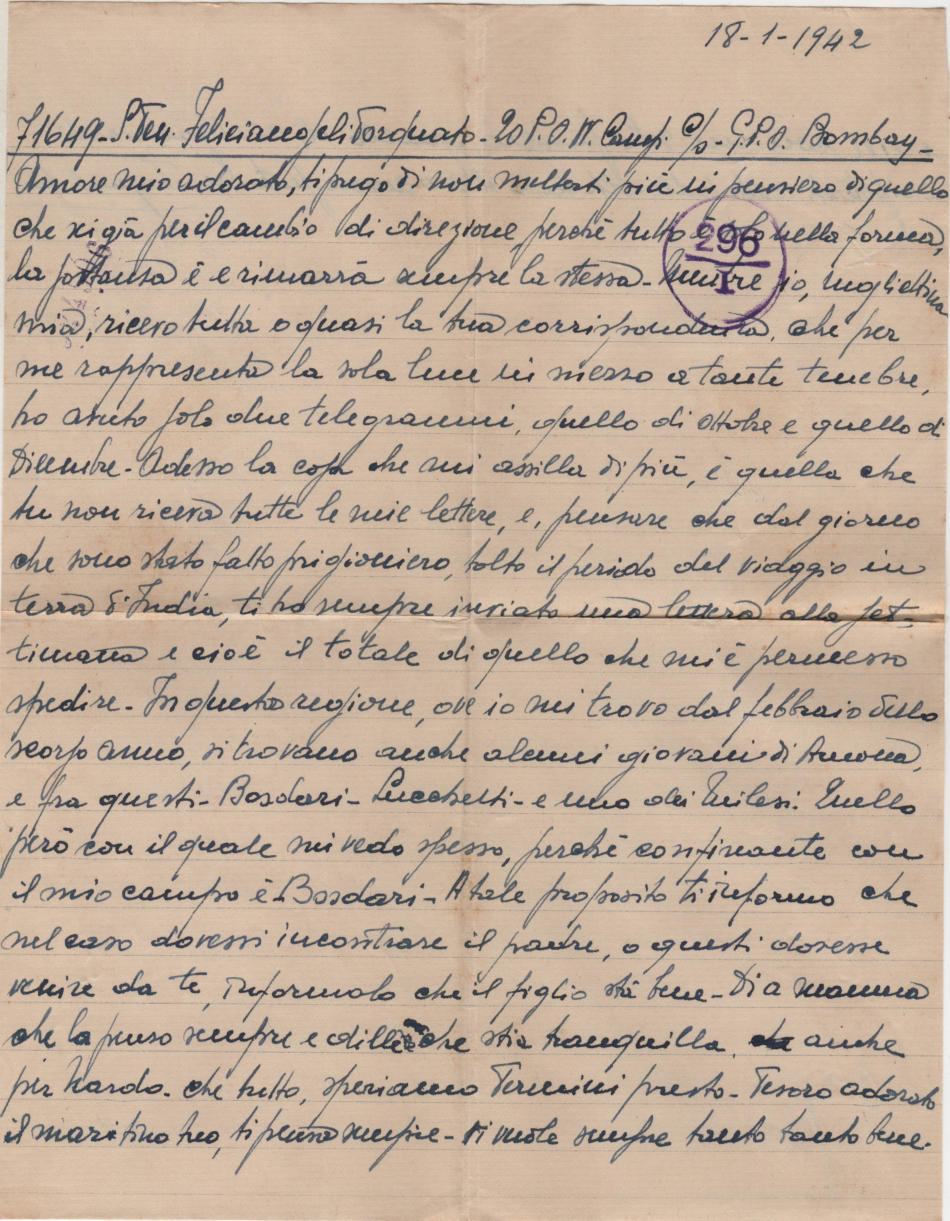 18-1-1942
71649- S.Ten. Feliciangeli Torquato- 20 P.O.W. Camp. C/o- G.P.O. Bombay-
Amore mio adorato, ti prego di non metterti più in pensiero di quello
che sei già per il cambio di direzione perché tutto è solo nella forma,
la sostanza è e rimarrà sempre la stessa- Mentre io, mogliettina
mia, ricevo tutta o quasi la tua corrispondenza, che per
me rappresenta la sola luce in mezzo a tante tenebre,
ho avuto solo due telegrammi, quello di Ottobre e quello di
Dicembre- Adesso la cosa che mi assilla di più, è quella che
tu non riceva tutte le mie lettere, e, pensare che dal giorno
che sono stato fatto prigioniero, tolto il periodo del viaggio in
terra d'India, ti ho sempre inviato una lettera alla set-
timana e cioè il totale di quello che mi è permesso
spedire- In questa regione, ove io mi trovo dal febbraio dello
scorso anno, si trovano anche alcuni giovani di Ancona,
e fra questi- Bosdari- Lucchetti- e uno dei Milesi. Quello
però con il quale mi vedo spesso, perché confinante con
il mio campo è Bosdari- A tale proposito ti informo che
nel caso dovessi incontrare il padre, o questi dovesse
venire da te, informalo che il figlio stà bene- Di a mamma
che la penso sempre e dille che stia tranquilla, anche
per Nardo. che tutto, speriamo Termini presto- Tesoro adorato
il maritino tuo, ti pensa sempre- ti vuole sempre tanto tanto bene-
296
I